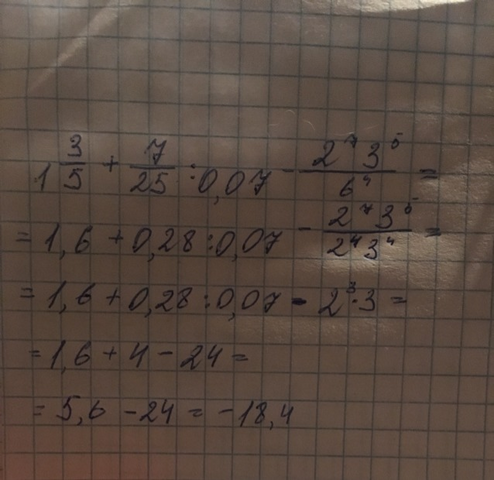 1 3/5 + 7/25 : 0,07 - 2⁷3⁵/6⁴ =
= 1,6 + 0,28 : 0,07 - 2⁷3⁵/2⁴3⁴ =
= 1,6 + 0,28 : 0,07 - 2³·3 =
= 1,6 + 4 - 24 =
= 5,6 - 24 = -18,4